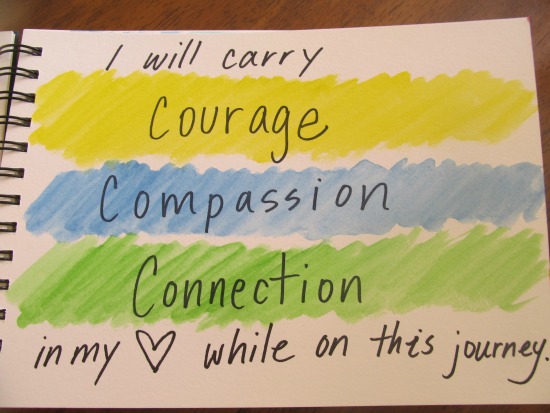 I will carry
Courage
Compassion
Connection
in my ♡ while on this journey.